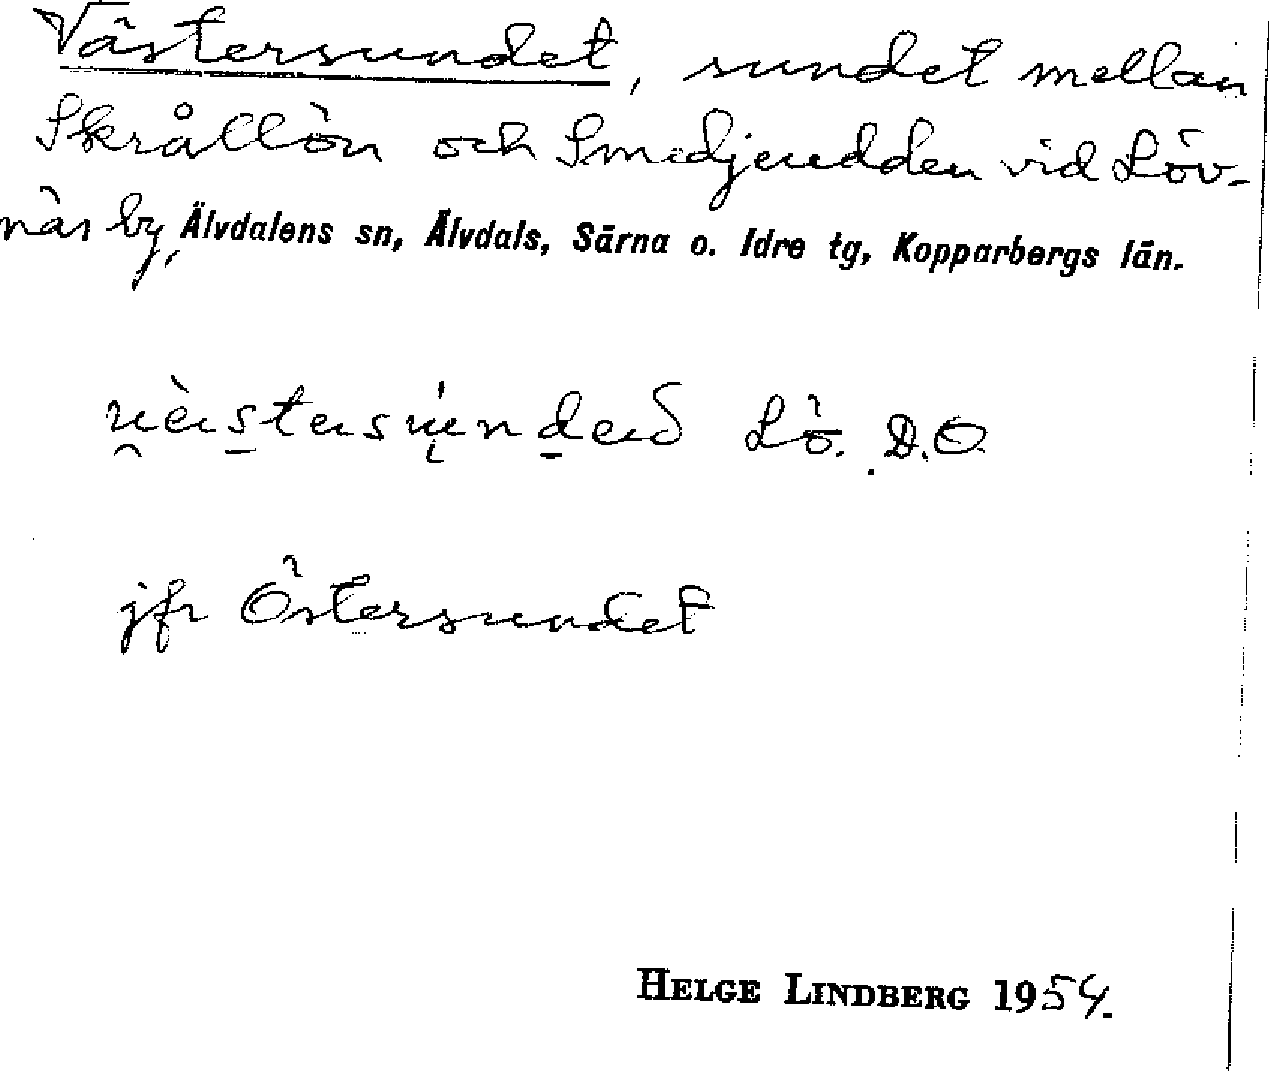 Västersundet, sundet mellan
Skrållön och Smedjeudden vid Löv-
näs by, Älvdalens sn, Älvdals, Särna o. Idre tg, Kopparbergs län.
Lö. D.O.
jfr Östersundet
HELGE LINDBERG 1954.